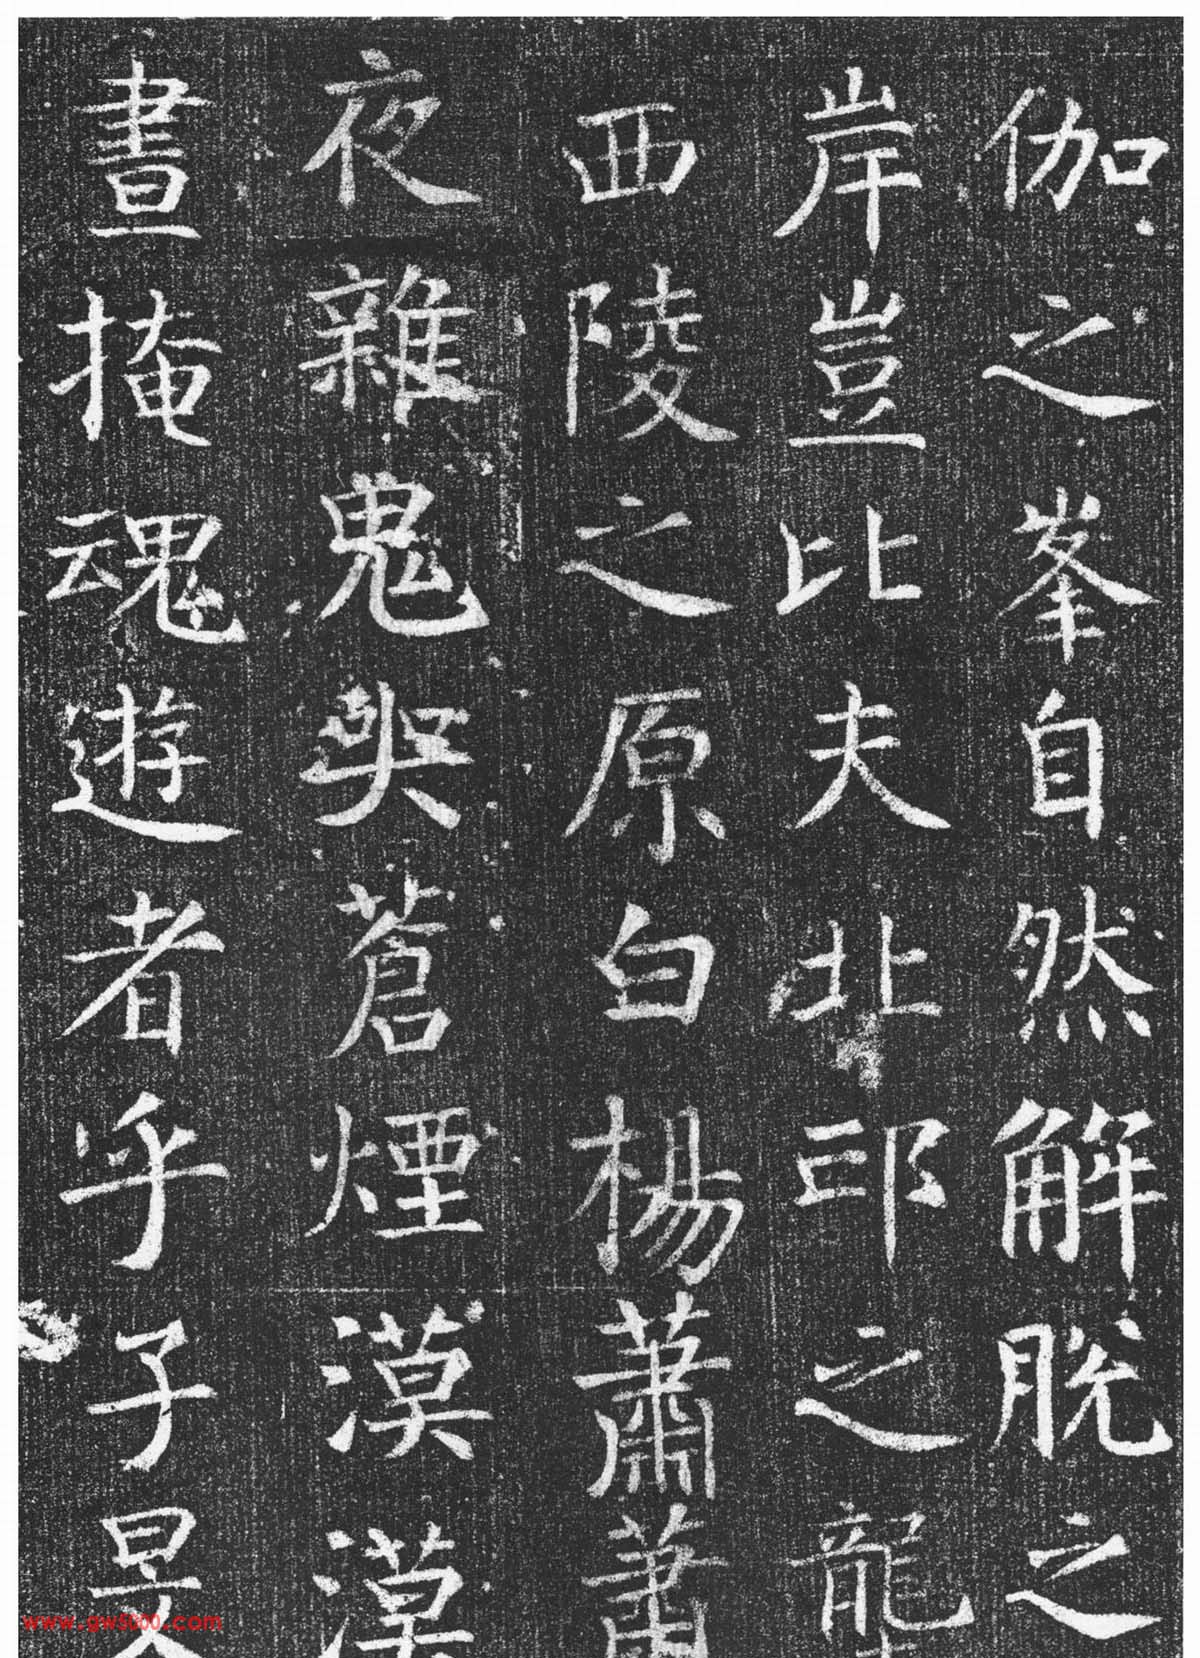 伽之峯自然解脫之
岸豈比夫北邙之龍
西陵之原白楊蕭蕭
夜雜鬼哭蒼煙漠漠
晝掩魂遊者乎子旻
www.gw5000.com